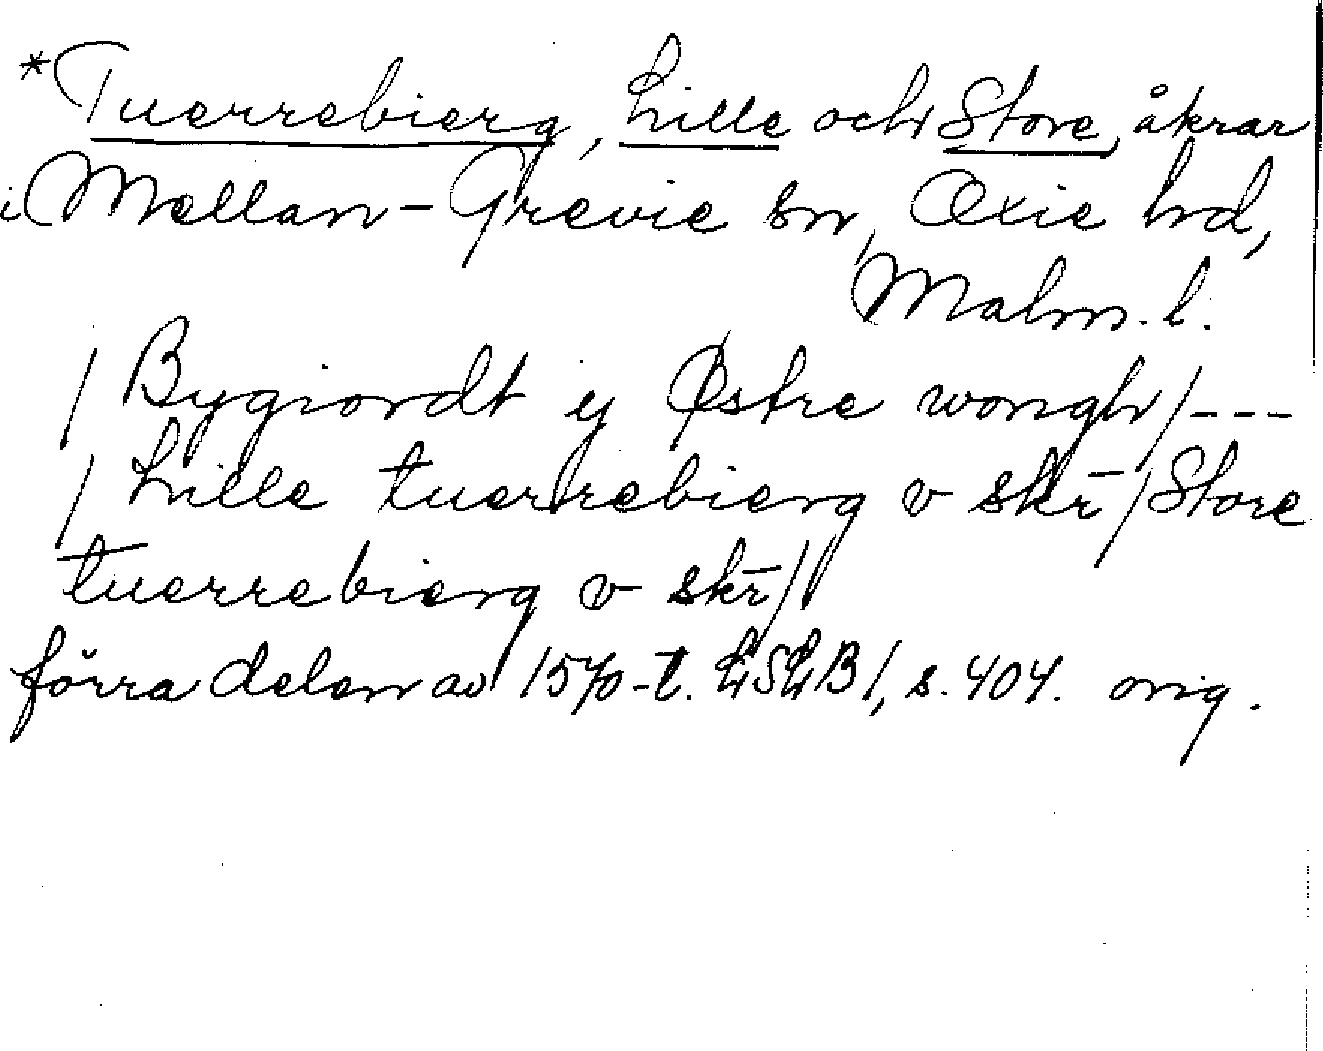 *Tuerrebierg, Lille och Store, åkrar
i Mellan-Grevie sn, Oxie hd,
Malm. l.
/ Bygiordt ij Østre wongh / ---
/ Lille tuerrebierg v skr̄ / Store
tuerrebierg v skr̄ /
förra delen av 1570-t. LSLB 1, s. 404. orig.